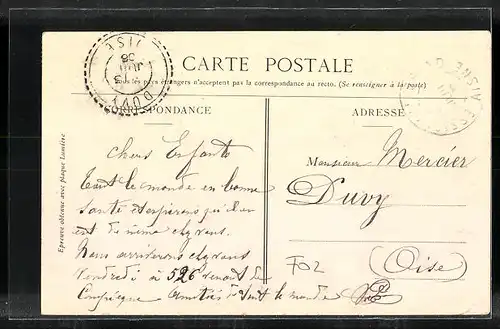 CARTE POSTALE
Tous les pays étrangers n'acceptent pas la correspondance au recto. (Se renseigner à la poste)
CORRESPONDANCE
ADRESSE
Epreuve obtenue avec plaque Lumière
Chers Enfants
Tout le monde en bonne
santé et espérons qu'il en
est de même chez vous.
Nous arriverons chez vous
Vendredi à 526 venant de
Compiègne Amitiés de tout le monde
Monsieur Mercier
Duvy
(Oise)
702